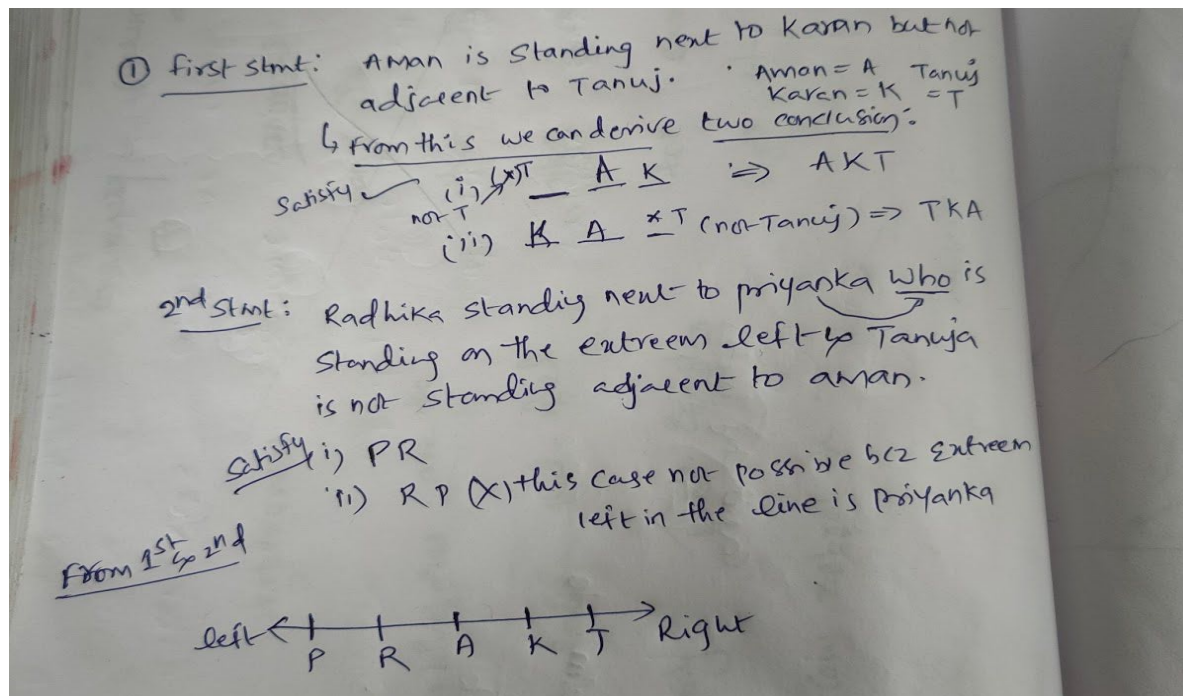 ① first stmt: Aman is standing next to Karan but not
adjacent to Tanuj. Aman = A Tanuj
Karan = K = T
↳ from this we can derive two conclusion:
Satisfy ✓ (i) (x)T _ A K ⇒ AKT
not T
(ii) K A *T (not Tanuj) ⇒ TKA
2nd stmt: Radhika standig next to priyanka who is
standing on the extreem left & Tanuja
is not standing adjacent to aman.
satisfy i) PR
ii) RP (X) this case not possible bcz extreem
left in the line is priyanka
From 1st & 2nd
left P R A K T Right